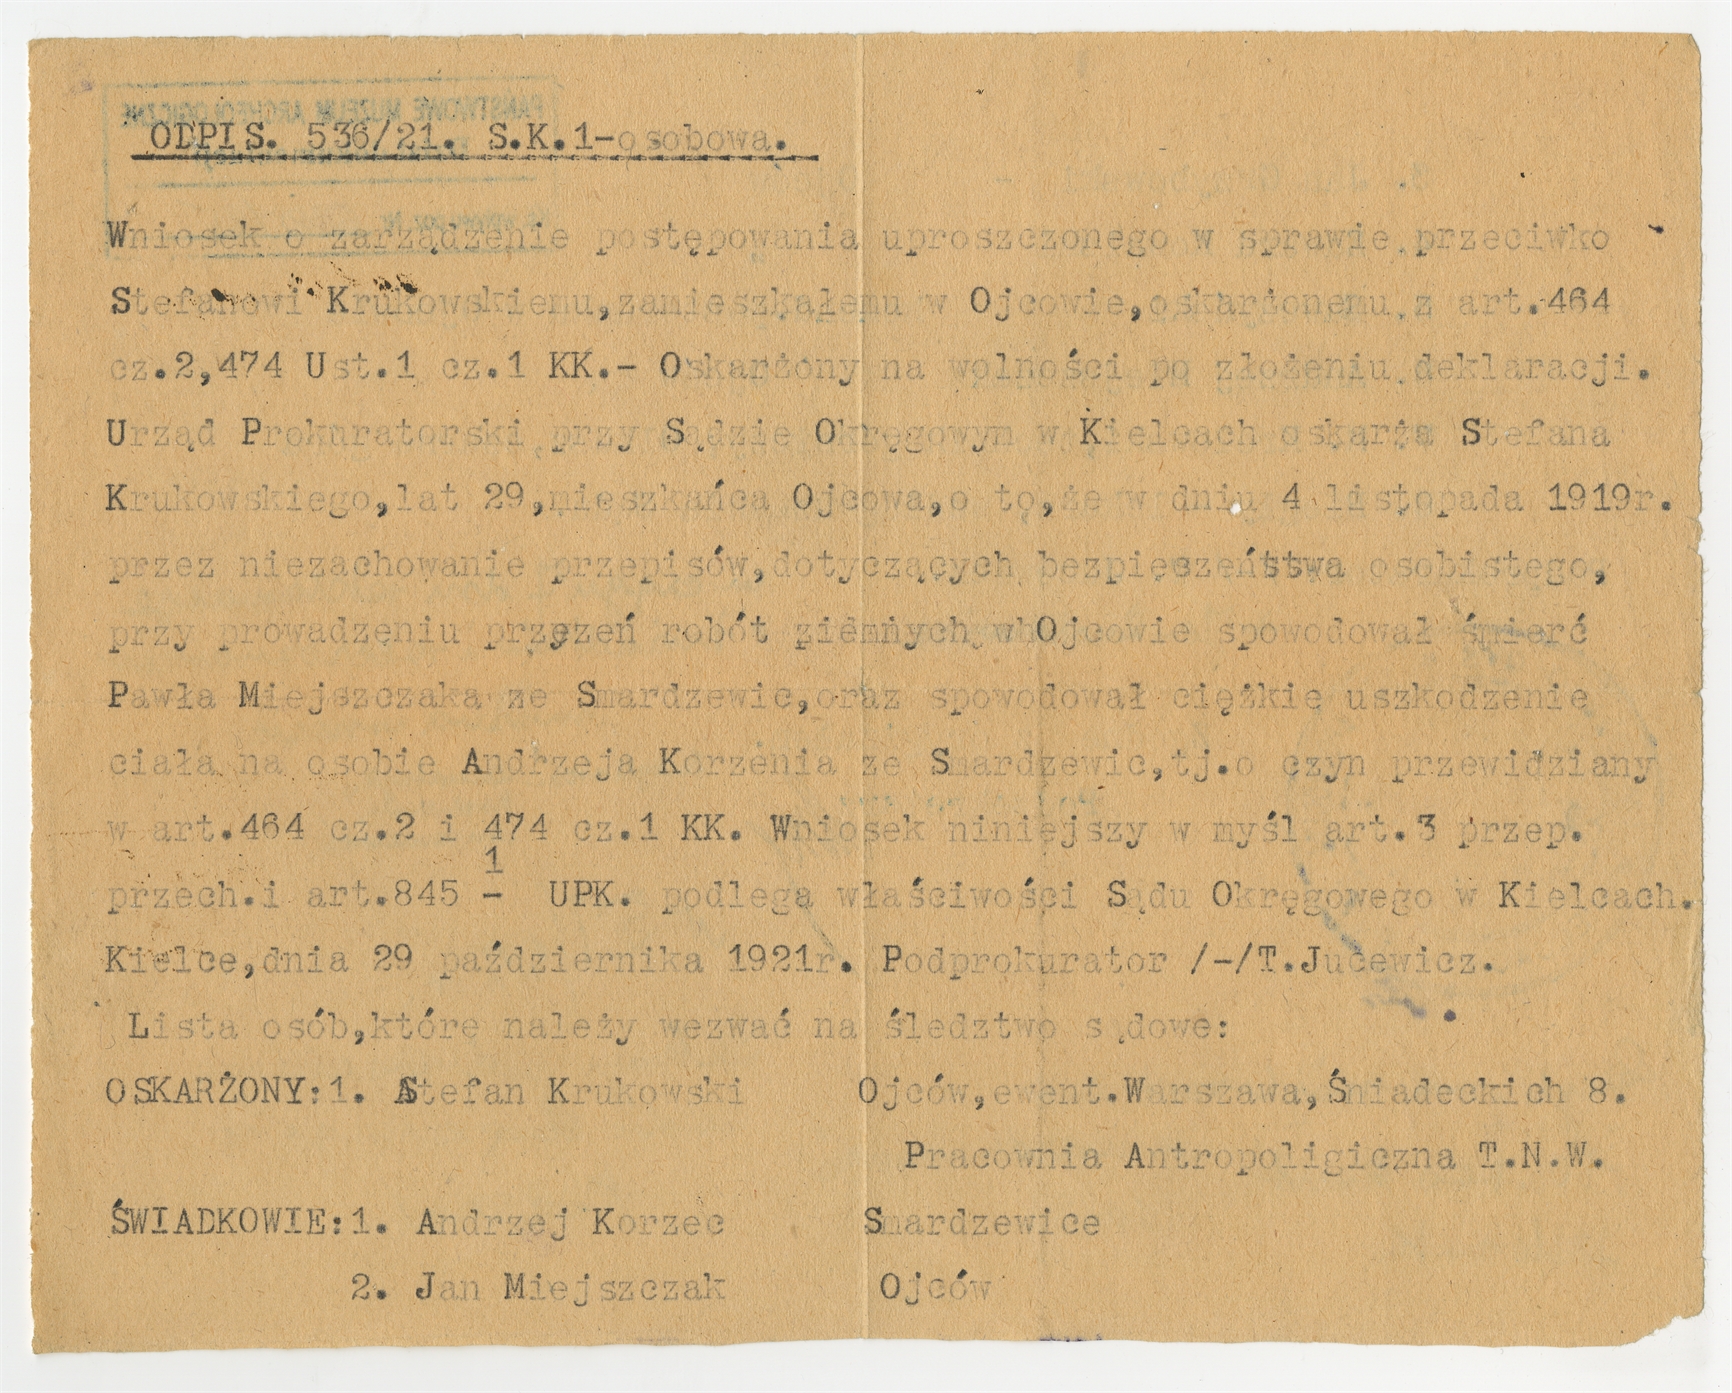 ODPIS. 536/21. S.K.1-osobowa.
Wniosek o zarządzenie postępowania uproszczonego w sprawie przeciwko
Stefanowi Krukowskiemu,zamieszkałemu w Ojcowie,oskarżonemu z art.464
cz.2,474 Ust.1 cz.1 KK.- Oskarżony na wolności po złożeniu deklaracji.
Urząd Prokuratorski przy Sądzie Okręgowym w Kielcach oskarża Stefana
Krukowskiego,lat 29,mieszkańca Ojcowa,o to,że w dniu 4 listopada 1919r.
przez niezachowanie przepisów,dotyczących bezpieczeństwa osobistego,
przy prowadzeniu przezeń robót ziemnych w Ojcowie spowodował śmierć
Pawła Miejszczaka ze Smardzewic,oraz spowodował ciężkie uszkodzenie
ciała na osobie Andrzeja Korzenia ze Smardzewic,tj.o czyn przewidziany
w art.464 cz.2 i 474 cz.1 KK. Wniosek niniejszy w myśl art.3 przep.
przech.i art.845 1/- UPK. podlega właściwości Sądu Okręgowego w Kielcach.
Kielce,dnia 29 października 1921r. Podprokurator /-/T.Jucewicz.
Lista osób,które należy wezwać na śledztwo s ądowe:
OSKARŻONY:1. Stefan Krukowski Ojców,ewent.Warszawa,Śniadeckich 8.
Pracownia Antropoligiczna T.N.W.
ŚWIADKOWIE:1. Andrzej Korzec Smardzewice
2. Jan Miejszczak Ojców